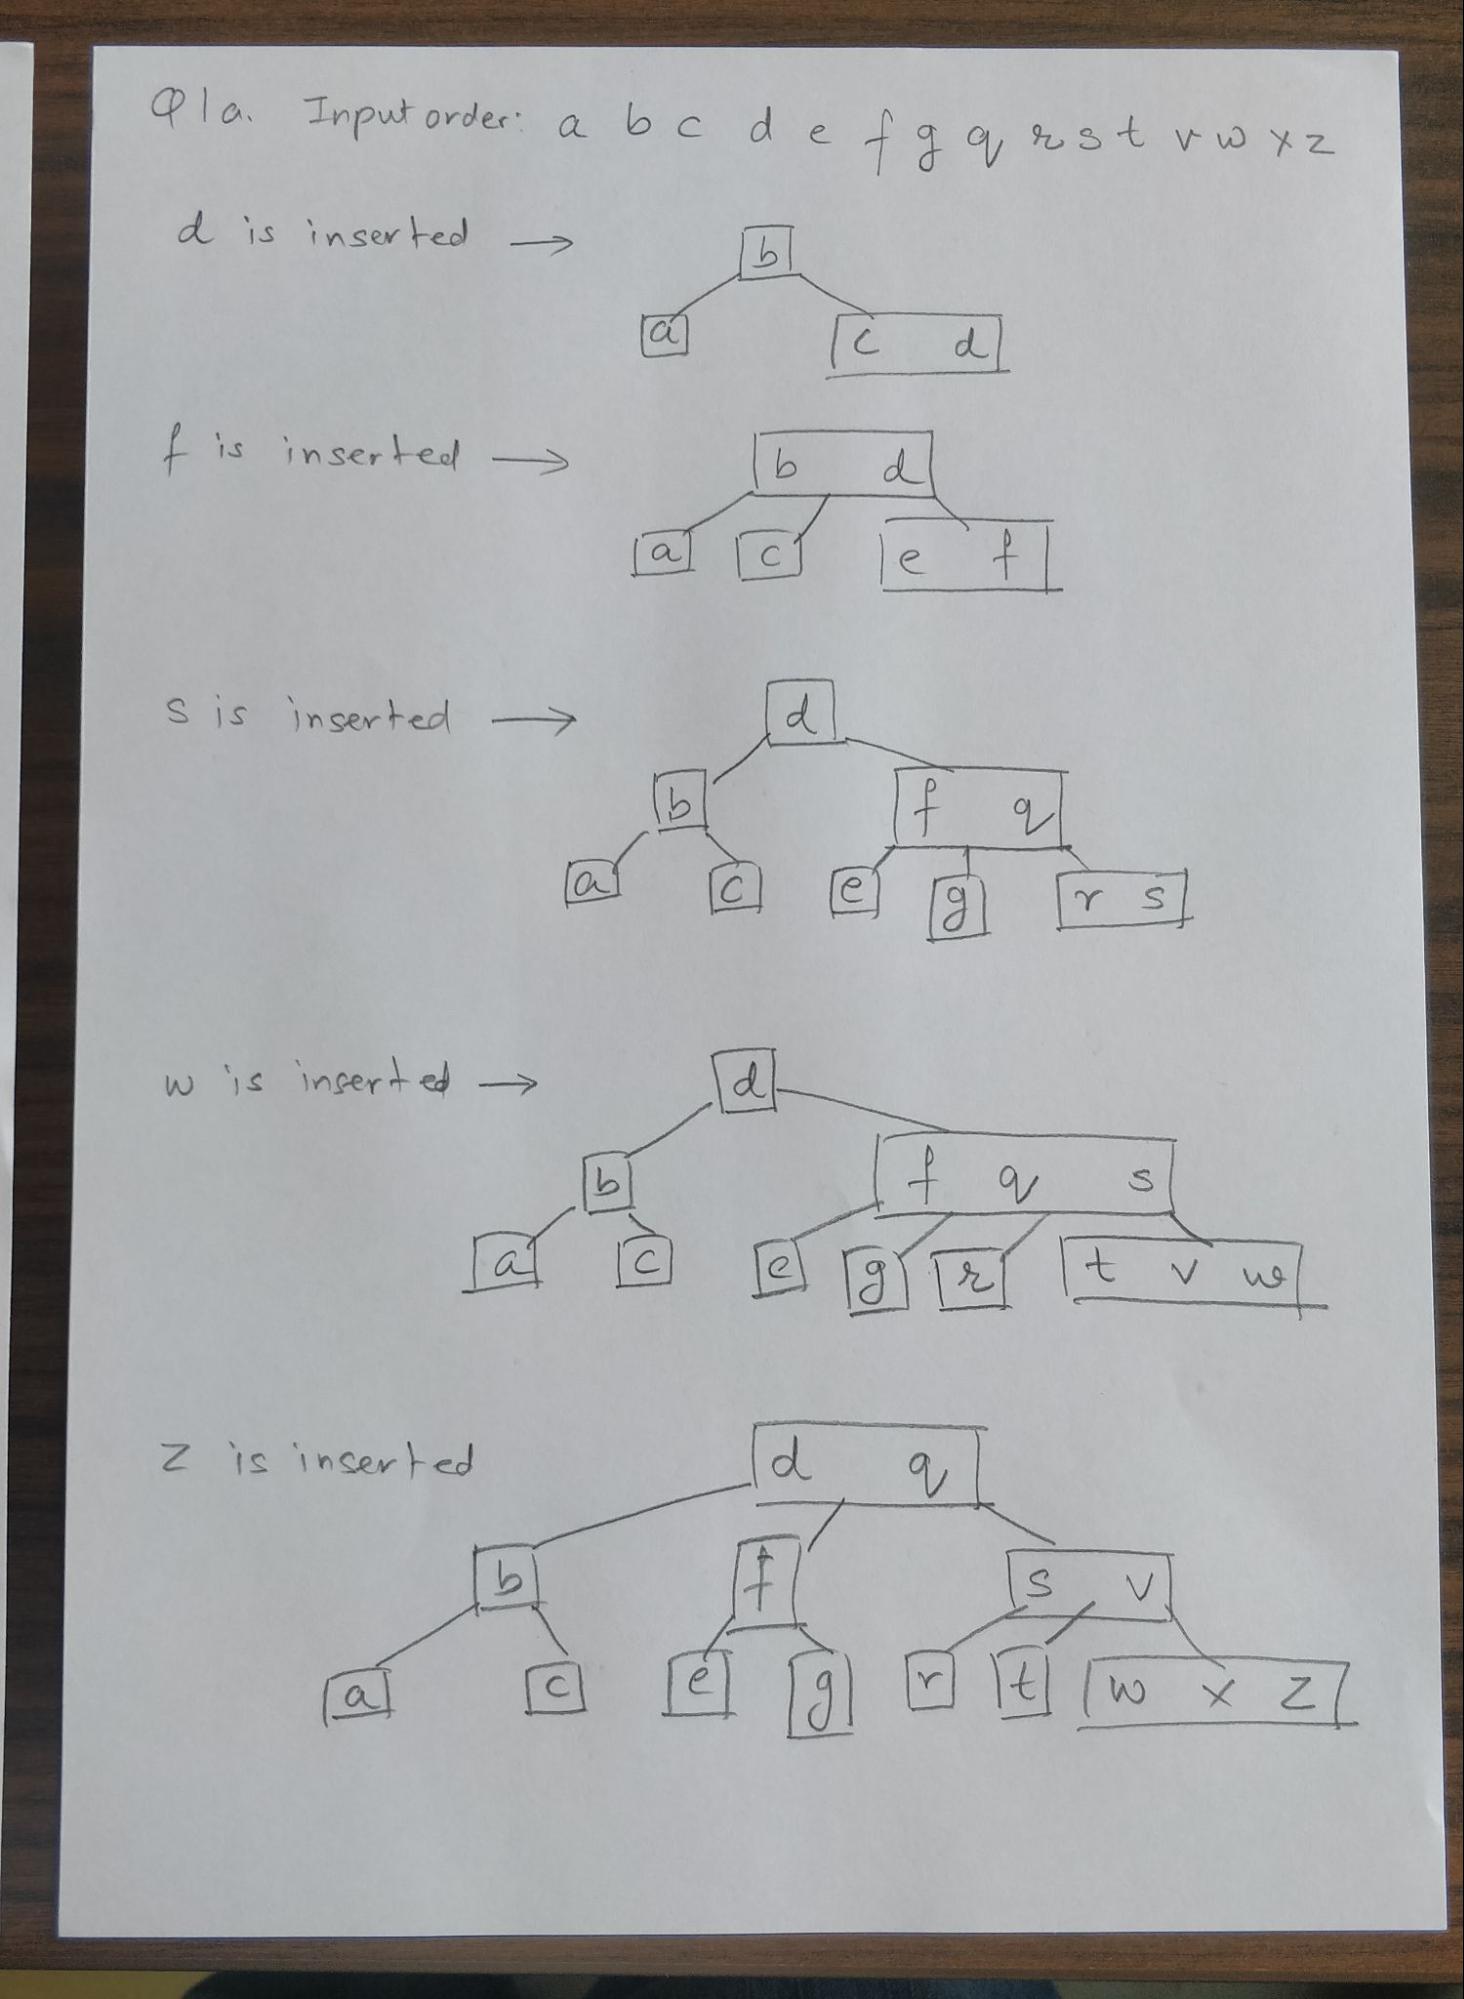 Q1a. Input order: a b c d e f g q r s t v w x z
d is inserted →
b
a c d
f is inserted →
b d
a c e f
s is inserted →
d
b f q
a c e g r s
w is inserted →
d
b f q s
a c e g r t v w
z is inserted
d q
b f s v
a c e g r t w x z